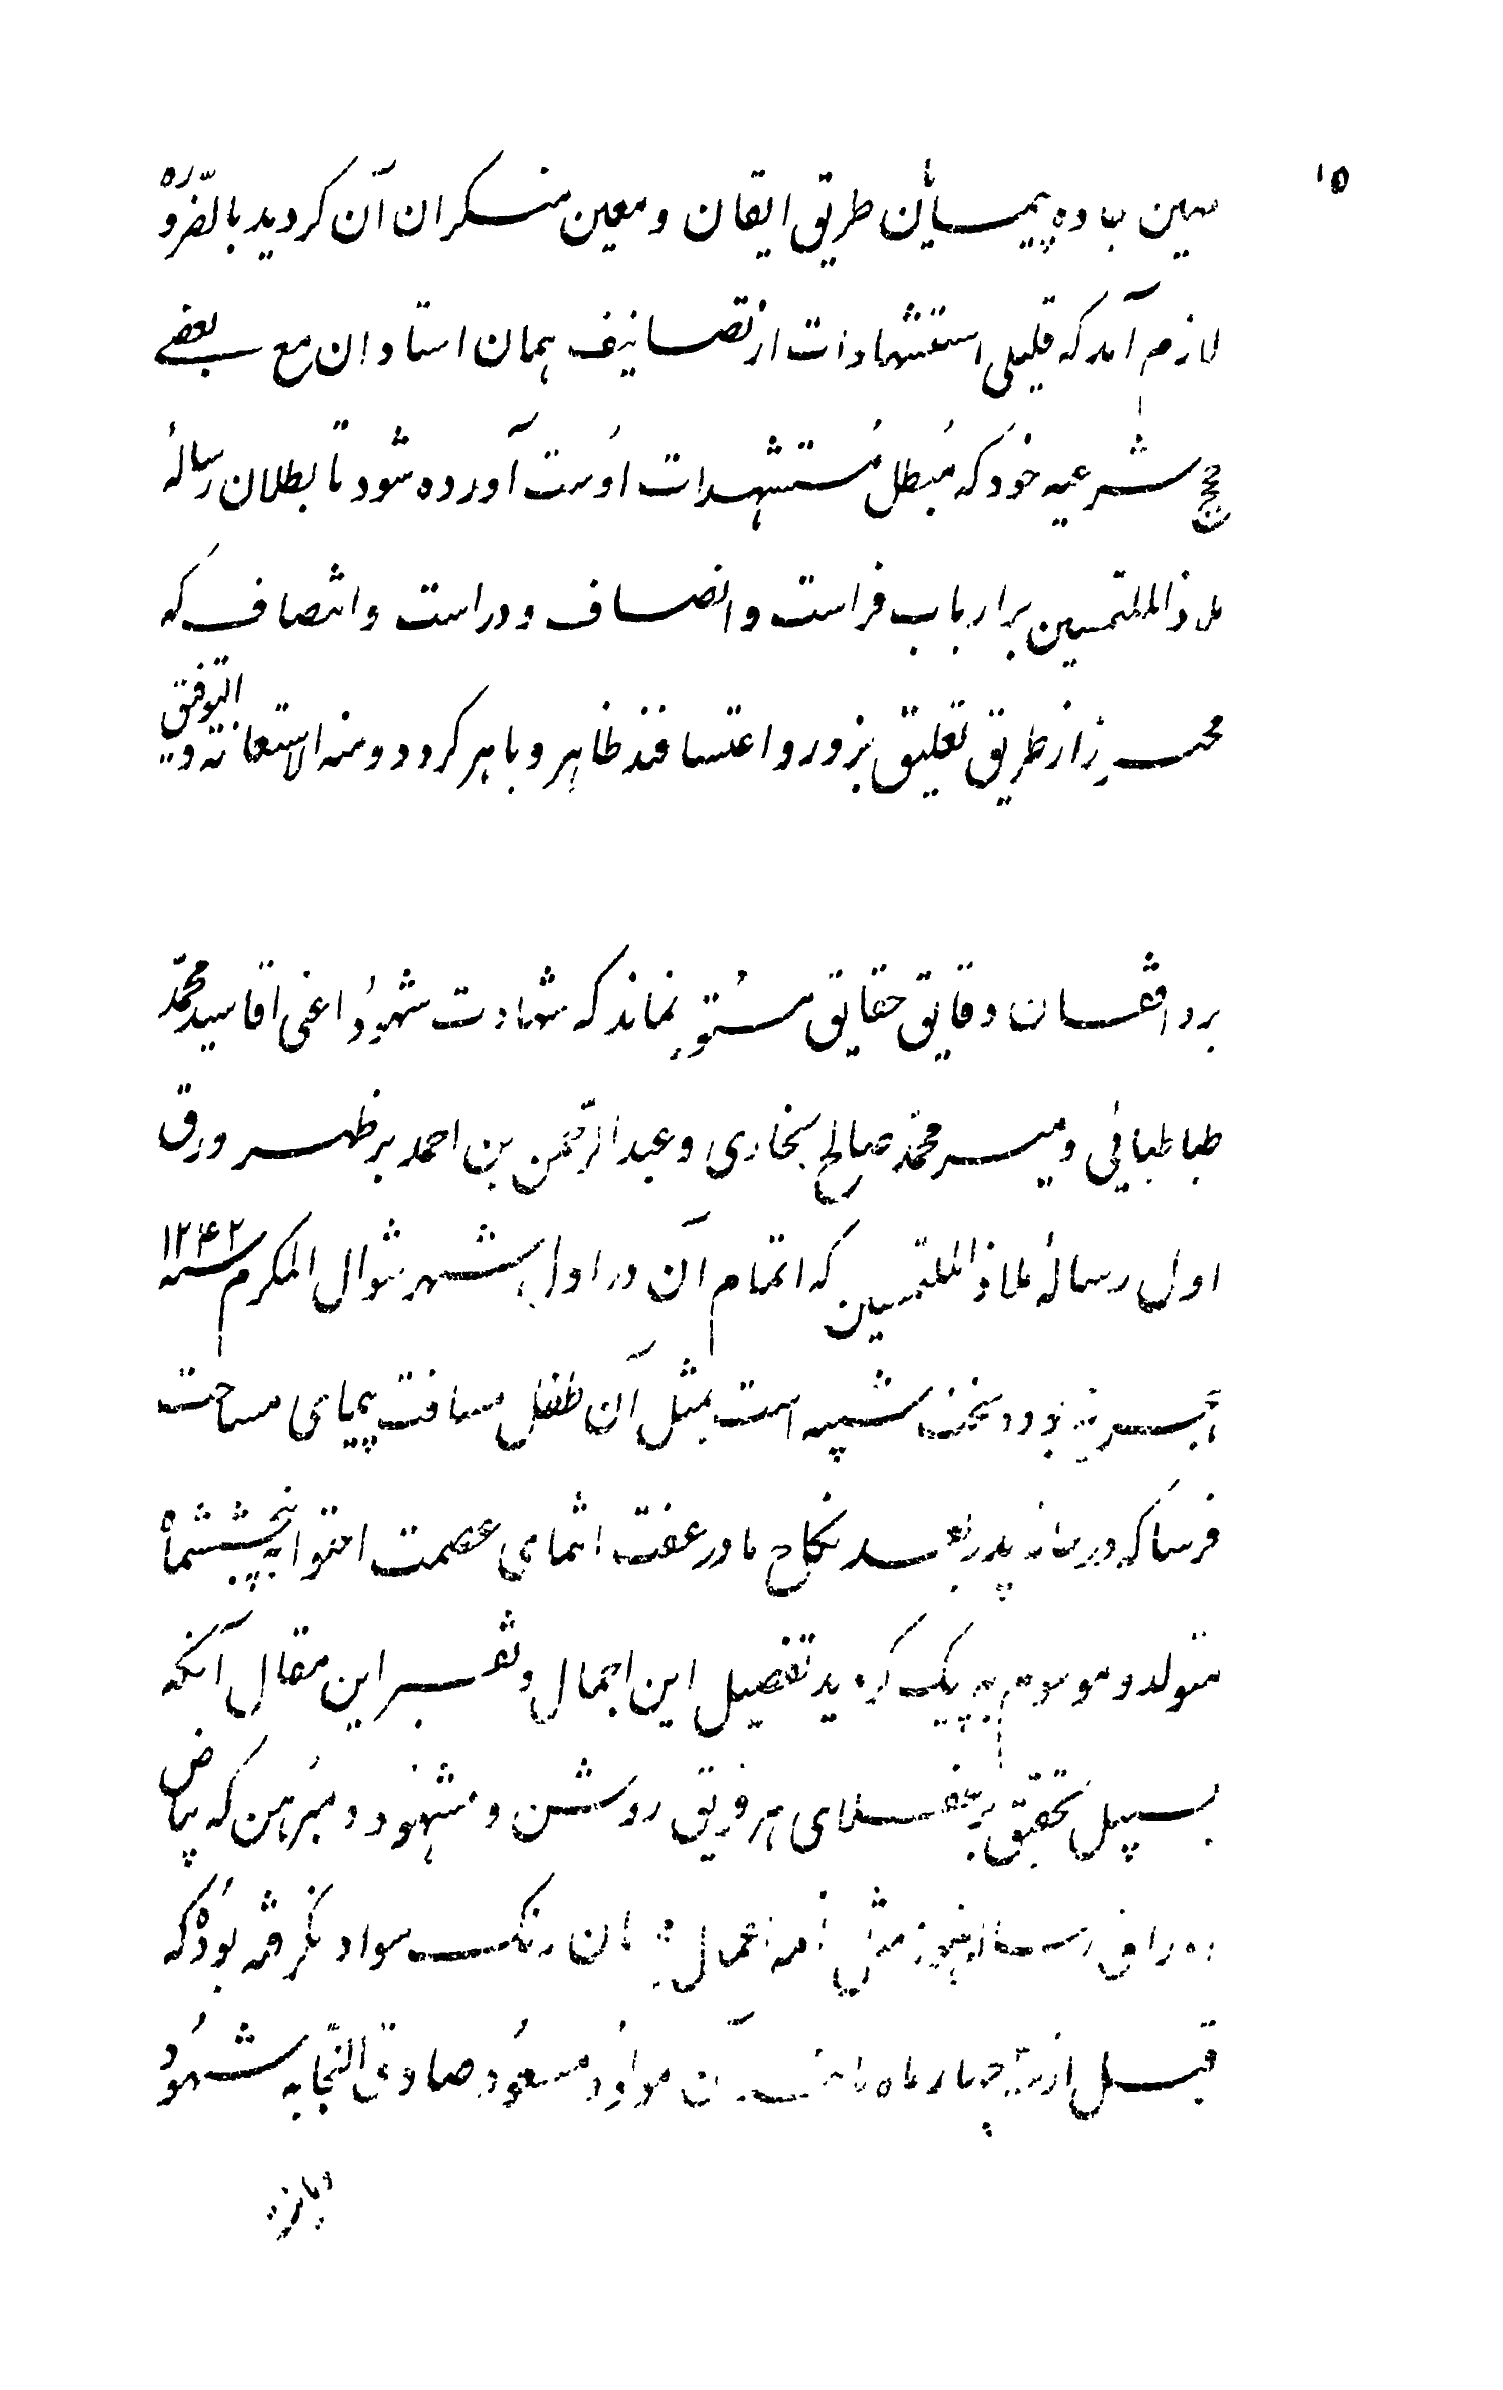 ۱۵
مهین بباده پیمایان طریق ایقان و معین منکران آن گردید بالضروره
لازم آمد که قلیلی استشهادات از تصانیف همان استادان مع بعضے
حجج شرعیه خود که مُبطل مُستشهدات اوُست آورده شود تا بطلان رسالهٔ
ملاذ الملتمسین بر ارباب فراست و انصاف و دراست و اتصاف که
محترز از طریق تعلیق بزور و اعتسافند ظاهر و باهر گردد و منه الاستعانة و به التوفیق
بر واقفان دقایق حقایق مستور نماند که شهادت شهود اعنی اقا سید محمّد
طباطبائی و میر محمّد صالح بخاری و عبد الرّحمن بن احمد بر ظهر ورق
اول رسالهٔ ملاذ الملتمسین که اتمام آن در اول شهر شوال المکرم سنه ۱۲۴۲
بود سخت شبیه است بمثل آن طفل مسافت پیمای مساحت
فرسا که در خانه پدر بعد نکاح مادر عفت انتمای عصمت احتوا به پنجششماه
متولد و موسوم به پیک گردید تفصیل این اجمال و تفسیر این مقال آنکه
بسبیل تحقیق بر عقلای هر فریق روشن و مشهود و مبرهن که بیاض
اوراق رساله هنوز مثل نامه اعمال رنگ سواد نگرفته بوُد که
قبل از چهار ماه آن مولوُد مسعوُد صادق النّجابه شهوُد